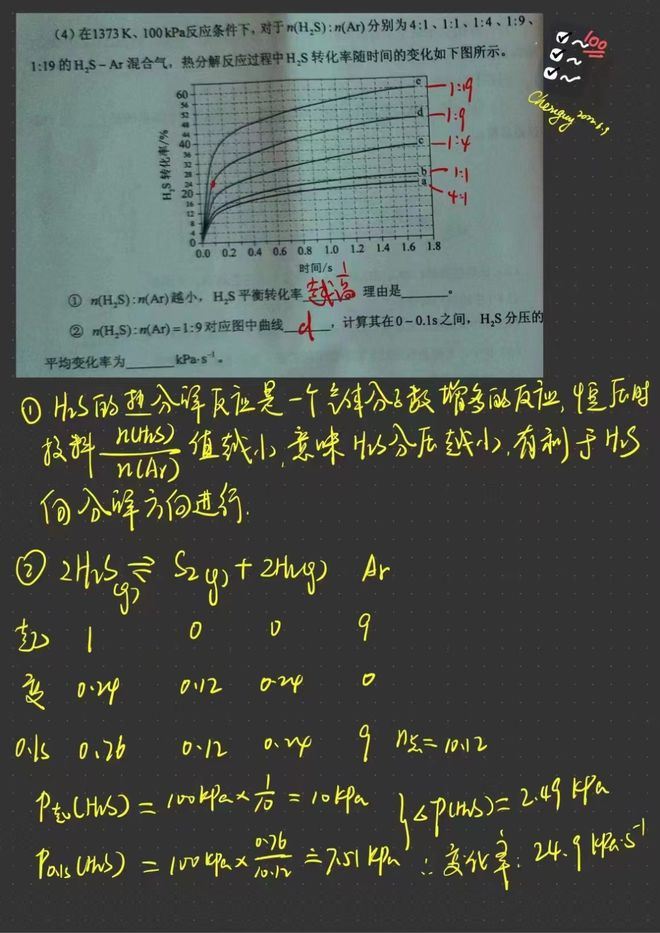 (4)在1373K、100kPa反应条件下,对于n(H₂S):n(Ar)分别为4:1、1:1、1:4、1:9、
1:19的H₂S-Ar混合气,热分解反应过程中H₂S转化率随时间的变化如下图所示。
100
H₂S转化率/%
60
56
52
48
44
40
36
32
28
24
20
16
12
8
4
0
e 1:19
d 1:9
c 1:4
b 1:1
a 4:1
0.0 0.2 0.4 0.6 0.8 1.0 1.2 1.4 1.6 1.8
时间/s
① n(H₂S):n(Ar)越小,H₂S平衡转化率越高 理由是______。
② n(H₂S):n(Ar)=1:9对应图中曲线 d ,计算其在0-0.1s之间,H₂S分压的
平均变化率为______kPa·s⁻¹。
① H₂S的热分解反应是一个气体分子数增多的反应,恒压时
投料 n(H₂S)/n(Ar) 值越小,意味H₂S分压越小,有利于H₂S
向分解方向进行.
② 2H₂S(g) ⇌ S₂(g) + 2H₂(g) Ar
起 1 0 0 9
变 0.24 0.12 0.24 0
0.1s 0.76 0.12 0.24 9 n总=10.12
P起(H₂S) = 100kPa×1/10 = 10kPa
} ΔP(H₂S)=2.49 kPa
P0.1s(H₂S) = 100kPa×0.76/10.12 ≐ 7.51kPa ∴ 变化率: 24.9 kPa·s⁻¹